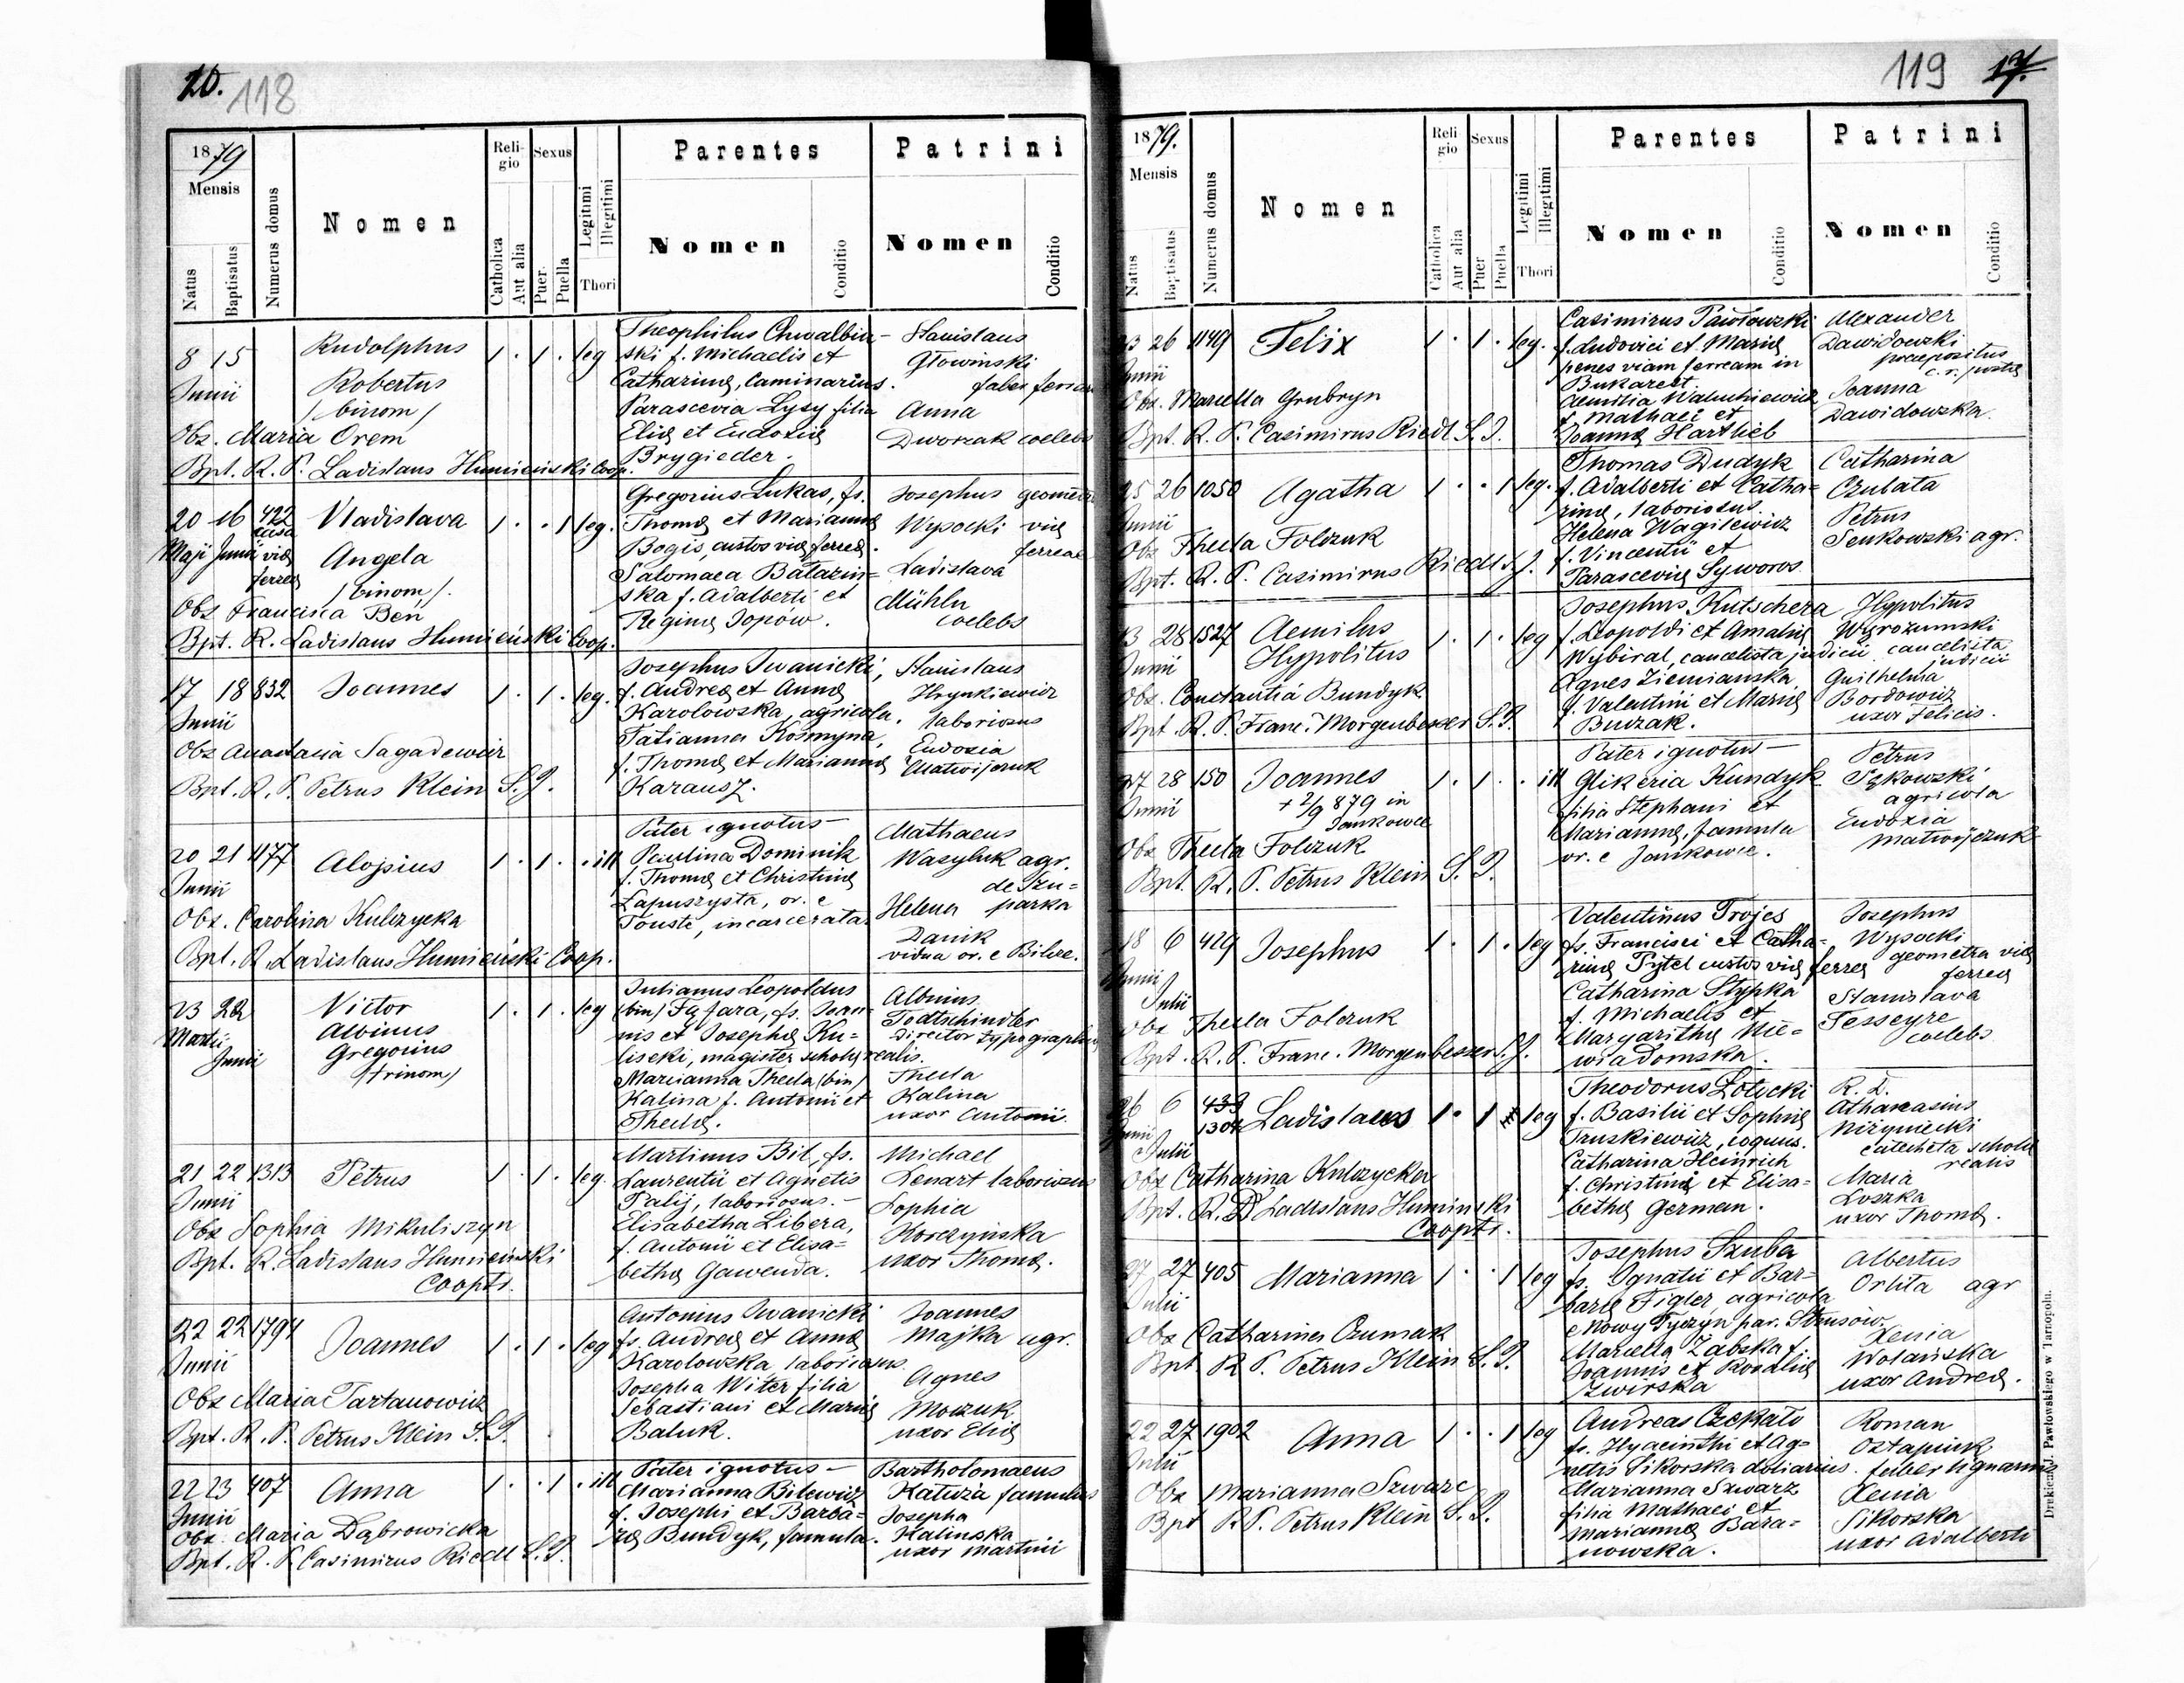 20. 118
1879
Mensis
Natus
Baptisatus
Numerus domus
Nomen
Religio
Catholica
Aut alia
Sexus
Puer
Puella
Legitimi
Illegitimi
Thori
Parentes
Nomen
Conditio
Patrini
Nomen
Conditio
8 15 Rudolphus 1 . 1 . leg
Junii Robertus
/binom/
Obs. Maria Orem
Bpt. R. P. Ladislaus Humieński Coop.
Theophilus Chwalbin-
ski f. Michaelis et
Catharinę, caminarius.
Parascevia Lysy filia
Elię et Eudoxię
Brygieder.
Stanislaus
Głowinski
faber
Anna
Dworzak coelebs
20 16 422 Vladislava 1 . . 1 leg.
Maji Junii casa vię ferreę Angela
/binom/.
Obs Francisca Beń
Bpt. R. Ladislaus Humieński Coop.
Gregorius Lukas, fs.
Thomę et Mariannę
Bogis, custos vię ferreę.
Salomaea Batazin-
ska f. Adalberti et
Reginę Jopów.
Josephus geometra
Wysocki vię
ferreae
Ladislava
Mühln
coelebs
17 18 832 Joannes 1 . 1 . leg.
Junii
Obs Anastasia Sagadewicz
Bpt. R. P. Petrus Klein S.J.
Josephus Iwanicki,
f. Andreę et Annę
Karolowska, agricola.
Tatianna Kosmyna,
f. Thomę et Mariannę
Karausz.
Stanislaus
Hrynkiewicz
laboriosus
Eudoxia
Matwijczuk
20 21 1177 Aloysius 1 . 1 . . ill
Junii
Obs. Carolina Kulczycka
Bpt. R. Ladislaus Humieński Coop.
Pater ignotus -
Paulina Dominik
f. Thomę et Christinę
Lapuszysta, or. e
Touste, incarcerata
Mathaeus
Wasyluk agr.
de Tru-
Helena parka
Danik
vidua or. e Bilcze.
23 22 Victor 1 . 1 . leg
Martii Albinus
Junii Gregorius
/trinom/
Julianus Leopoldus
(bin) Fąfara, fs. Joan-
nis et Josephę Ku-
liseki, magister scholę realis.
Marianna Thecla (bin)
Kalina f. Antonii et
Theclę.
Albinus
Todtschindler
Director typographię
Thecla
Kalina
uxor Antonii.
21 22 1313 Petrus 1 . 1 . leg.
Junii
Obs Sophia Mikuliszyn
Bpt. R. Ladislaus Humieński
Cooptr.
Martinus Bil, fs.
Laurentii et Agnetis
Palij, laboriosus. -
Elisabetha Libera,
f. Antonii et Elisa-
bethę Gawenda.
Michael
Lenart laboriosus
Sophia
Korczyńska
uxor Thomę.
22 22 1794 Joannes 1 . 1 . leg
Junii
Obs Maria Tartanowicz
Bpt. R. P. Petrus Klein S.J.
Antonius Iwanicki
fs. Andreę et Annę
Karolowska laboriosus.
Josepha Witer filia
Sebastiani et Marię
Baluk.
Joannes
Majka agr.
Agnes
Moczuk
uxor Elię
22 23 407 Anna 1 . . 1 . ill
Junii
Obs. Maria Dąbrowicka
Bpt. R. P. Casimirus Riedl S.J.
Pater ignotus -
Marianna Bilewicz
f. Josephi et Barba-
rę Bundyk, famula.
Bartholomaeus
Katuża famulus
Josepha
Kalinska
uxor Martini
119 17.
1879.
Mensis
Natus
Baptisatus
Numerus domus
Nomen
Religio
Catholica
Aut alia
Sexus
Puer
Puella
Legitimi
Illegitimi
Thori
Parentes
Nomen
Conditio
Patrini
Nomen
Conditio
23 26 1149 Felix 1 . 1 . leg.
Junii
Obs. Marcella Grubryn
Bpt. R. P. Casimirus Riedl S.J.
Casimirus Pawłowski
f. Ludovici et Marię
penes viam ferream in
Bukarest.
Aemilia Waluchiewicz
f. Mathaei et
Joannę Hartlieb
Alexander
Dawidowski
praepositus
c. r. postę
Joanna
Dawidowska
25 26 1050 Agatha 1 . . 1 leg.
Junii
Obs Thecla Folczuk
Bpt. R. P. Casimirus Riedl S.J.
Thomas Dudyk
f. Adalberti et Catha-
rinę, laboriosus.
Helena Wagilewicz
f. Vincentii et
Parascevię Syworos
Catharina
Czubata
Petrus
Senkowski agr.
13 28 1527 Aemilus 1 . 1 . leg
Junii Hypolitus
Obs. Constantia Bundyk
Bpt. R. P. Franc. Morgenbesser S.J.
Josephus Kutschera
f. Leopoldi et Amalię
Wybiral, cancelista judicii
Agnes Ziemianska
f. Valentini et Marię
Buczak.
Hypolitus
Wyrozumski
cancelista
judicii
Guilhelma
Bordowicz
uxor Felicis.
27 28 150 Joannes 1 . 1 . . ill
Junii + 2/9 879 in
Jankowce
Obs Thecla Folczuk
Bpt. R. P. Petrus Klein S.J.
Pater ignotus -
Glikeria Kundyk
filia Stephani et
Mariannę, famula
or. e Jankowce.
Petrus
Sękowski
agricola
Eudoxia
Matwijczuk
18 6 429 Josephus 1 . 1 . leg
Junii
Julii
Obs Thecla Folczuk
Bpt. R. P. Franc. Morgenbesser S.J.
Valentinus Trojes
fs. Francisci et Catha-
rinę Pytel custos vię ferreę
Catharina Stypka
f. Michaelis et
Margarithę Nie-
wiadomska.
Josephus
Wysocki
geometra vię
ferreę
Stanislava
Tesseyre
coelebs
26 6 433 1304 Ladislaus 1 . 1 leg
Junii
Julii
Obs Catharina Kulczycka
Bpt. R. D Ladislaus Huminski
Cooptr.
Theodorus Łotocki
f. Basilii et Sophię
Truskiewicz, coquus.
Catharina Heinrich
f. Christinę et Elisa-
bethę German.
R. D.
Athanasius
Niżyniecki
catecheta scholę
realis
Maria
Loszka
uxor Thomę.
27 27 405 Marianna 1 . . 1 leg
Julii
Obs Catharina Czumak
Bpt R P. Petrus Klein S.J.
Josephus Szuba
fs. Ignatii et Bar-
barę Figler, agricola
e Nowy Tyczyn par. Strusów.
Marcella Zabska f.
Joannis et Rosalię
Zwirska
Albertus
Orlita agr
Xenia
Wolańska
uxor Andreę.
22 27 1902 Anna 1 . . 1 leg
Julii
Obs Marianna Szwarc
Bpt R P. Petrus Klein S.J.
Andreas Czekało
fs. Hyacinthi et Ag-
netis Sikorska doliarius.
Marianna Szwarz
filia Mathaei et
Mariannę Bara-
nowska.
Roman
Ostapiuk
faber lignarius
Xenia
Sikorska
uxor Adalberti
Drukiem J. Pawłowskiego w Tarnopolu.